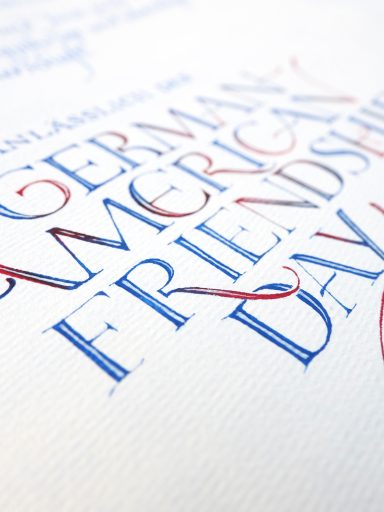 ANLÄSSLICH DES
GERMAN
AMERICAN
FRIENDSHI
DAY